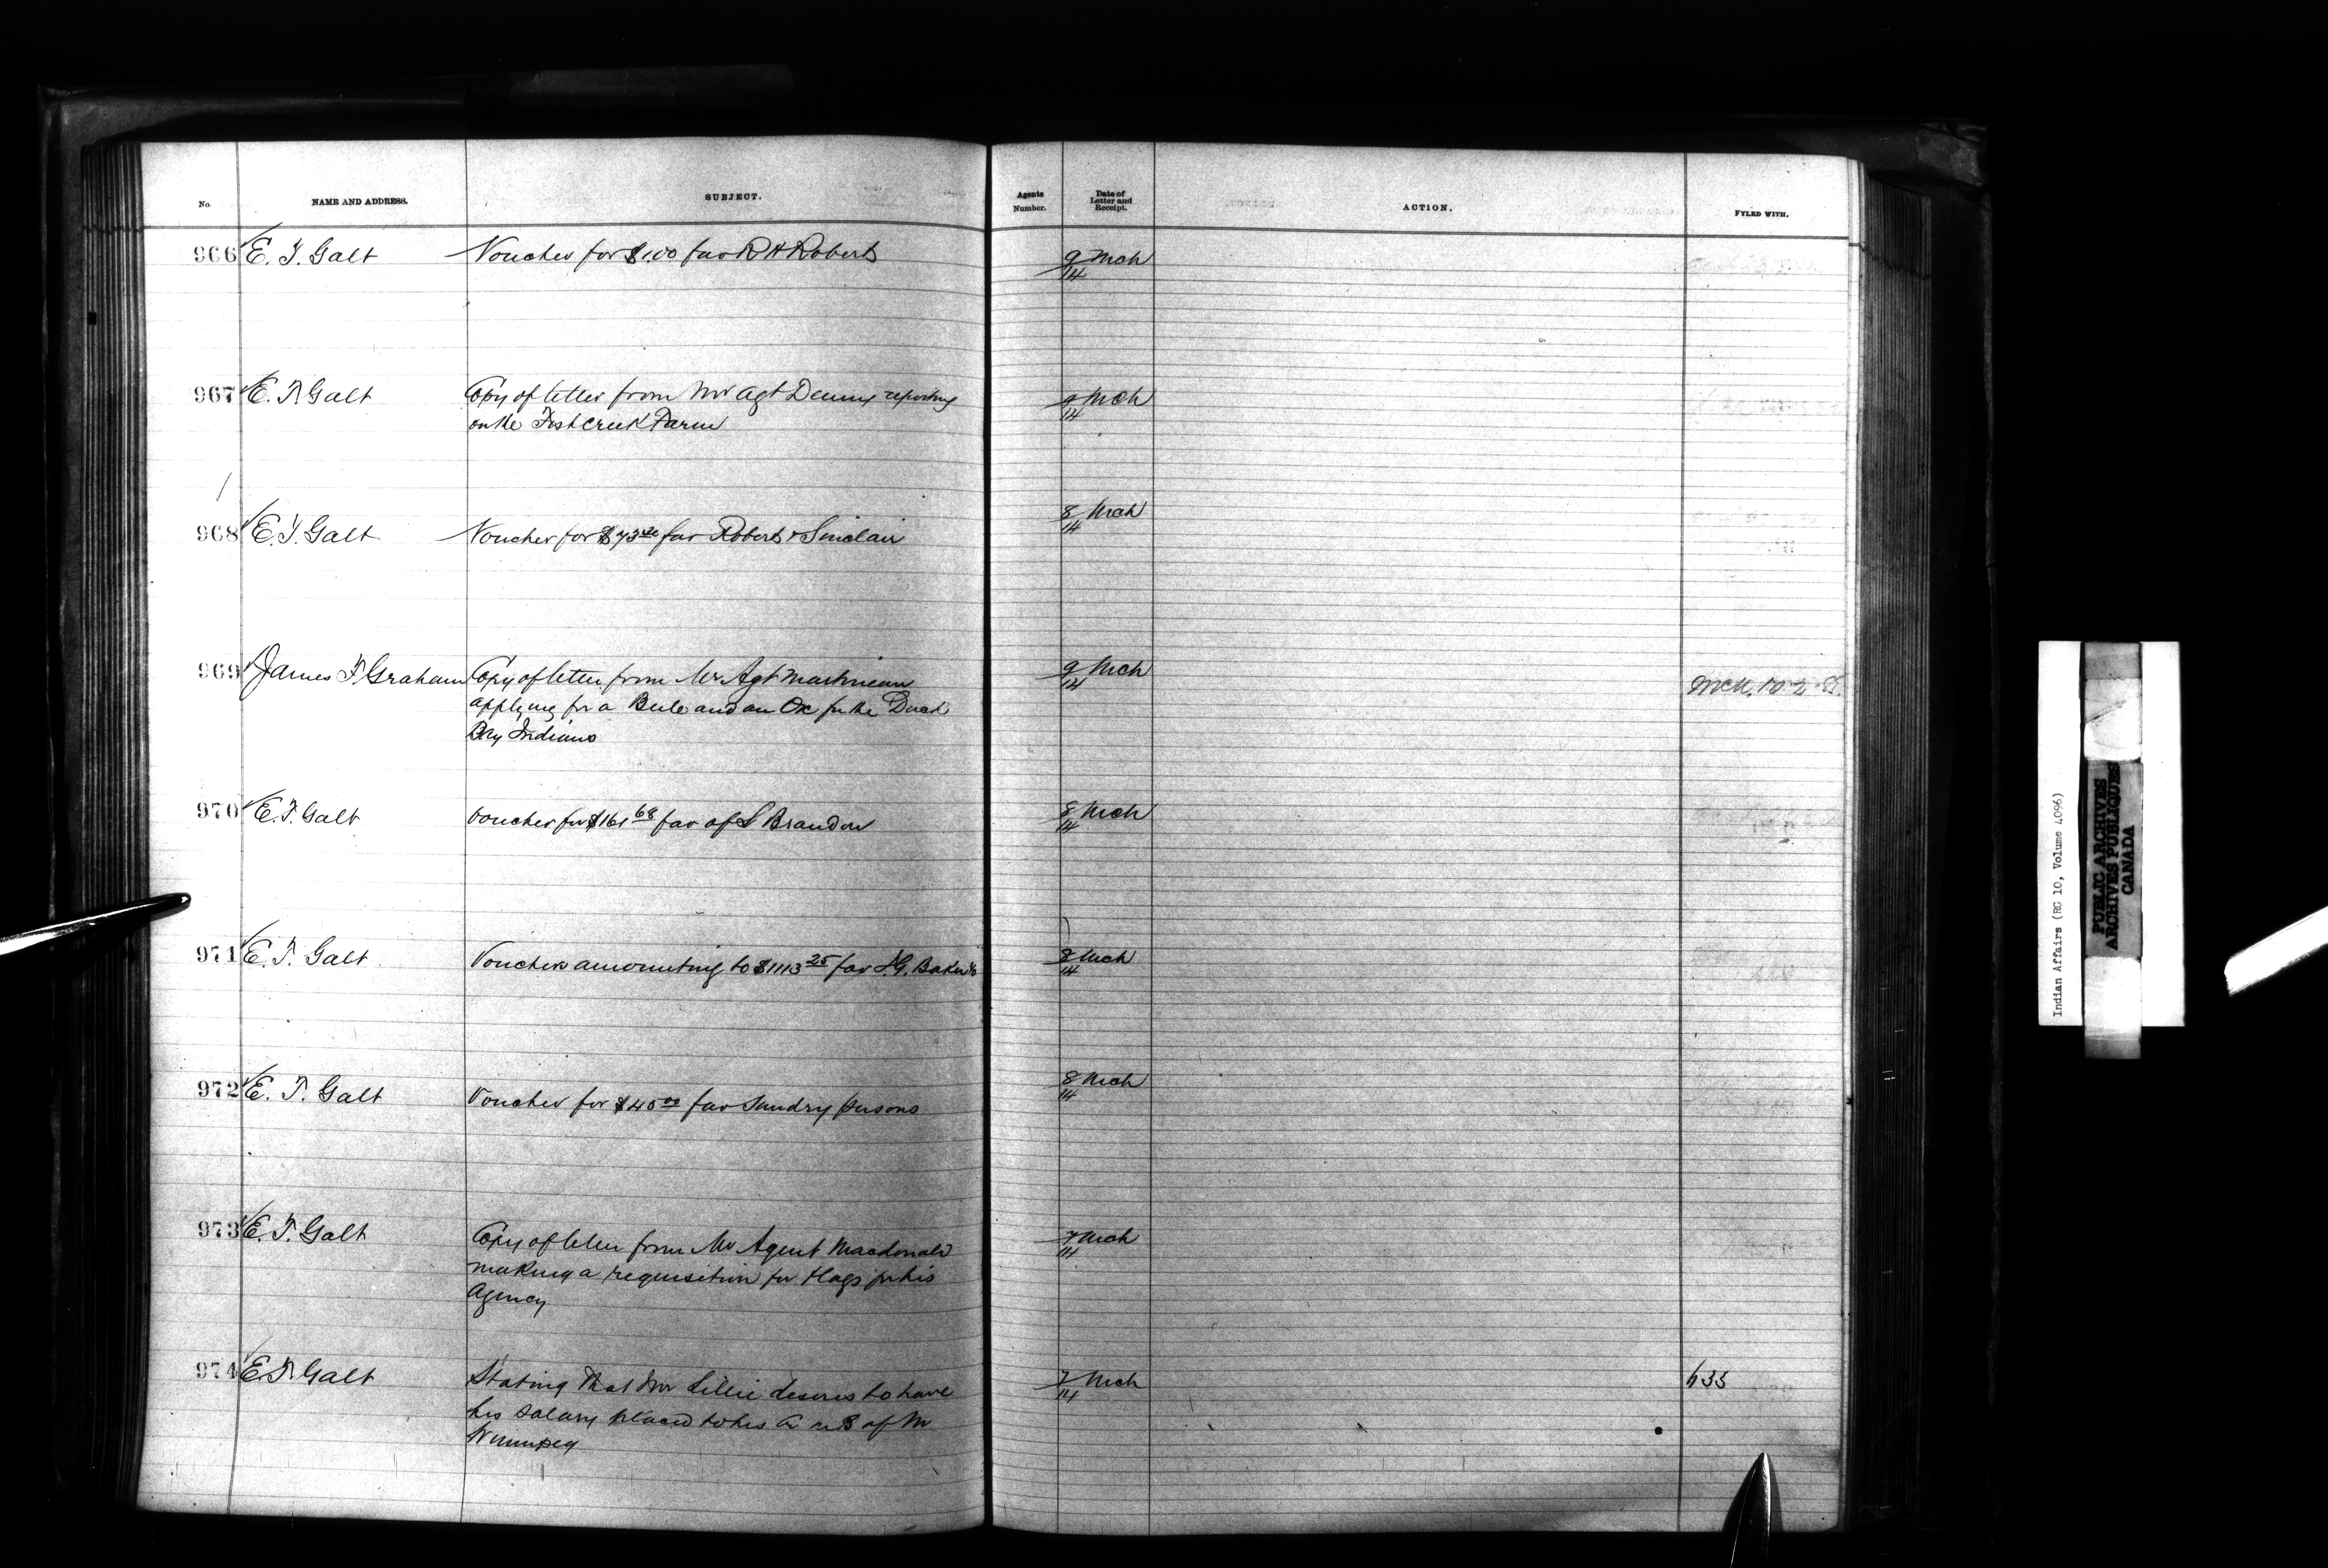 No. NAME AND ADDRESS. SUBJECT. Agents Number. Date of Letter and Receipt. ACTION. FYLED WITH.
966 E. T. Galt Voucher for $1.00 fav R H Roberts 9/14 Mch
967 E. T. Galt Copy of letter from Mr Agt Denny reporting
on the Fish Creek Farm
/14 Mch
968 E. T. Galt Voucher for $73 fav Roberts & Sinclair 8/14 Mch
969 James F. Graham Copy of letter from Mr Agt Martineau
applying for a Bull and an Ox for the Duck
Bay Indians
9/14 Mch
970 E. T. Galt Voucher for $161 68 fav of S Brandon 8/14 Mch
971 E. T. Galt Vouchers amounting to $1113 25 fav I. G. Baker & Co 8/14 Mch
972 E. T. Galt Voucher for $45 00 fav Sundry persons 8/14 Mch
973 E. T. Galt Copy of letter from Mr Agent Macdonald
making a requisition for Flags for his
Agency
7/14 Mch
974 E. T. Galt Stating that Mr Lillie desires to have
his salary placed to his in B of M
Winnipeg
7/14 Mch 635
Indian Affairs (RG 10, Volume 4096)
PUBLIC ARCHIVES
ARCHIVES PUBLIQUES
CANADA